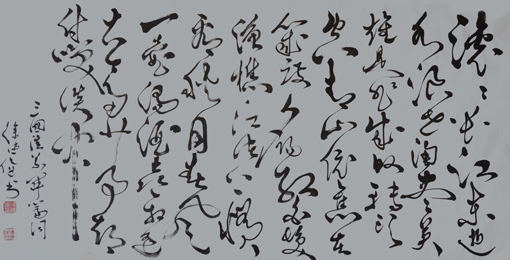 滚滚长江东逝
水浪花淘尽英
雄是非成败转头
空青山依旧在
几度夕阳红白发
渔樵江渚上惯
看秋月春风
一壶浊酒喜相逢
古今多少事都
付笑谈中
三国演义开篇词